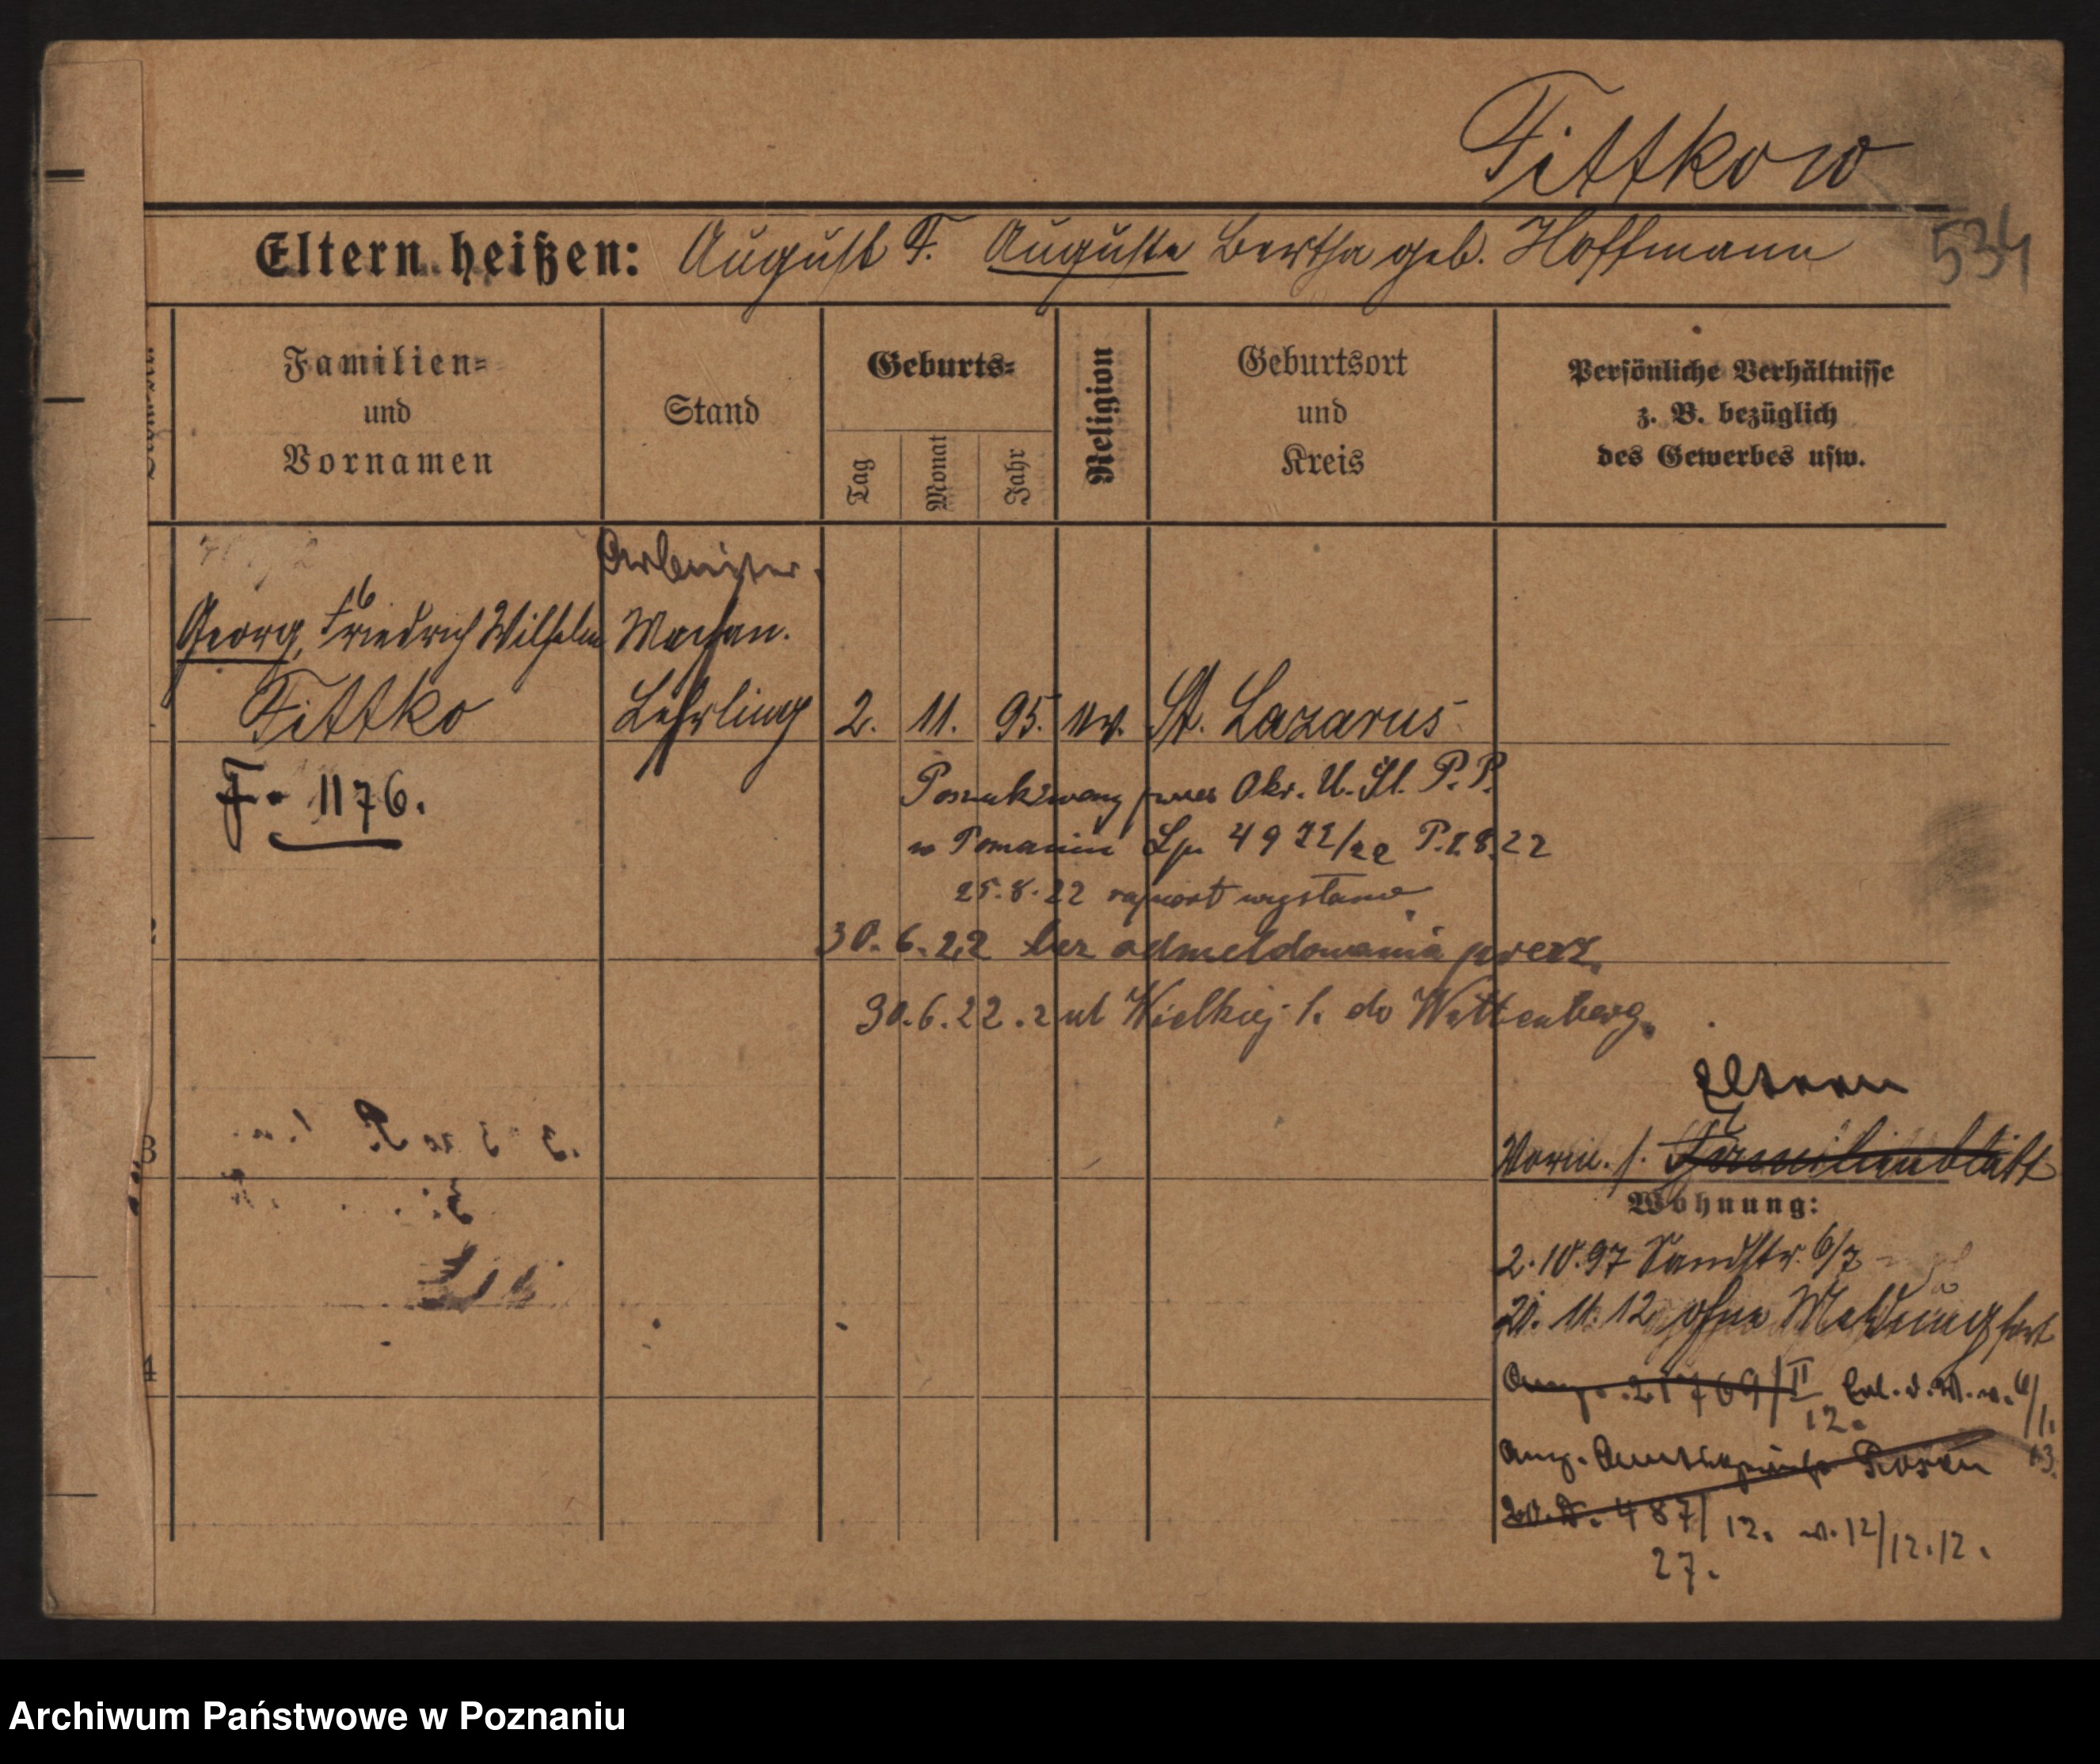 Tittkow
Eltern heißen: August T. Auguste Bertha geb. Hoffmann
534
Familien-
und
Vornamen
Stand
Geburts-
Tag
Monat
Jahr
Religion
Geburtsort
und
Kreis
Persönliche Verhältnisse
z. B. bezüglich
des Gewerbes usw.
Arbeiter.
Georg, Friedrich Wilhelm
Maschin.
Tittko
Lehrling
2. 11. 95. ev. St. Lazarus
F. 1176.
Poszukiwany przez Okr. U. Śl. P. P.
w Poznaniu Lp. 4972/22 P. 1.8.22
25.8.22 raport wystaw.
30.6.22 bez odmeldowania przez.
30.6.22. z ul Wielkiej 1. do Wittenberg.
Eltern
3
Vorm. s. Familienblatt
Wohnung:
2.10.97 Sandstr. 6/7
20.11.12 ohne Meldung fort
4
21769/II
12.
Posen
487/12. v. 12/12.12.
27.
Archiwum Państwowe w Poznaniu